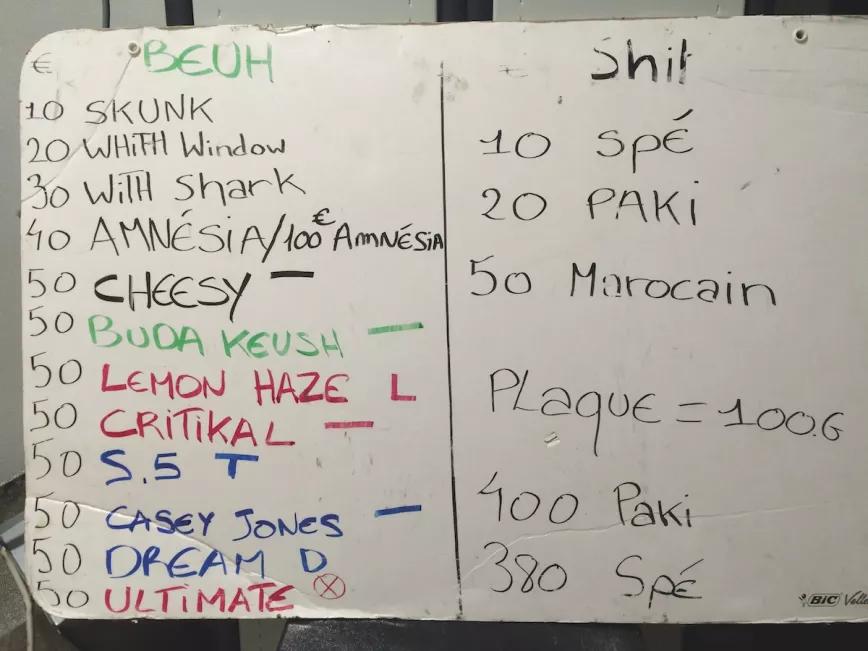 € BEUH
10 SKUNK
20 WHiTH Window
30 WiTH Shark
40 AMNÉSiA/100€ AMNÉSiA
50 CHEESY —
50 BUDA KEUSH —
50 LEMON HAZE L
50 CRiTiKAL —
50 S.5 T
50 CASEY JONES —
50 DREAM D
50 ULTiMATE ⊗
Shit
10 Spé
20 PAKi
50 Marocain
PLaque = 100.G
400 Paki
380 Spé
BIC Velle